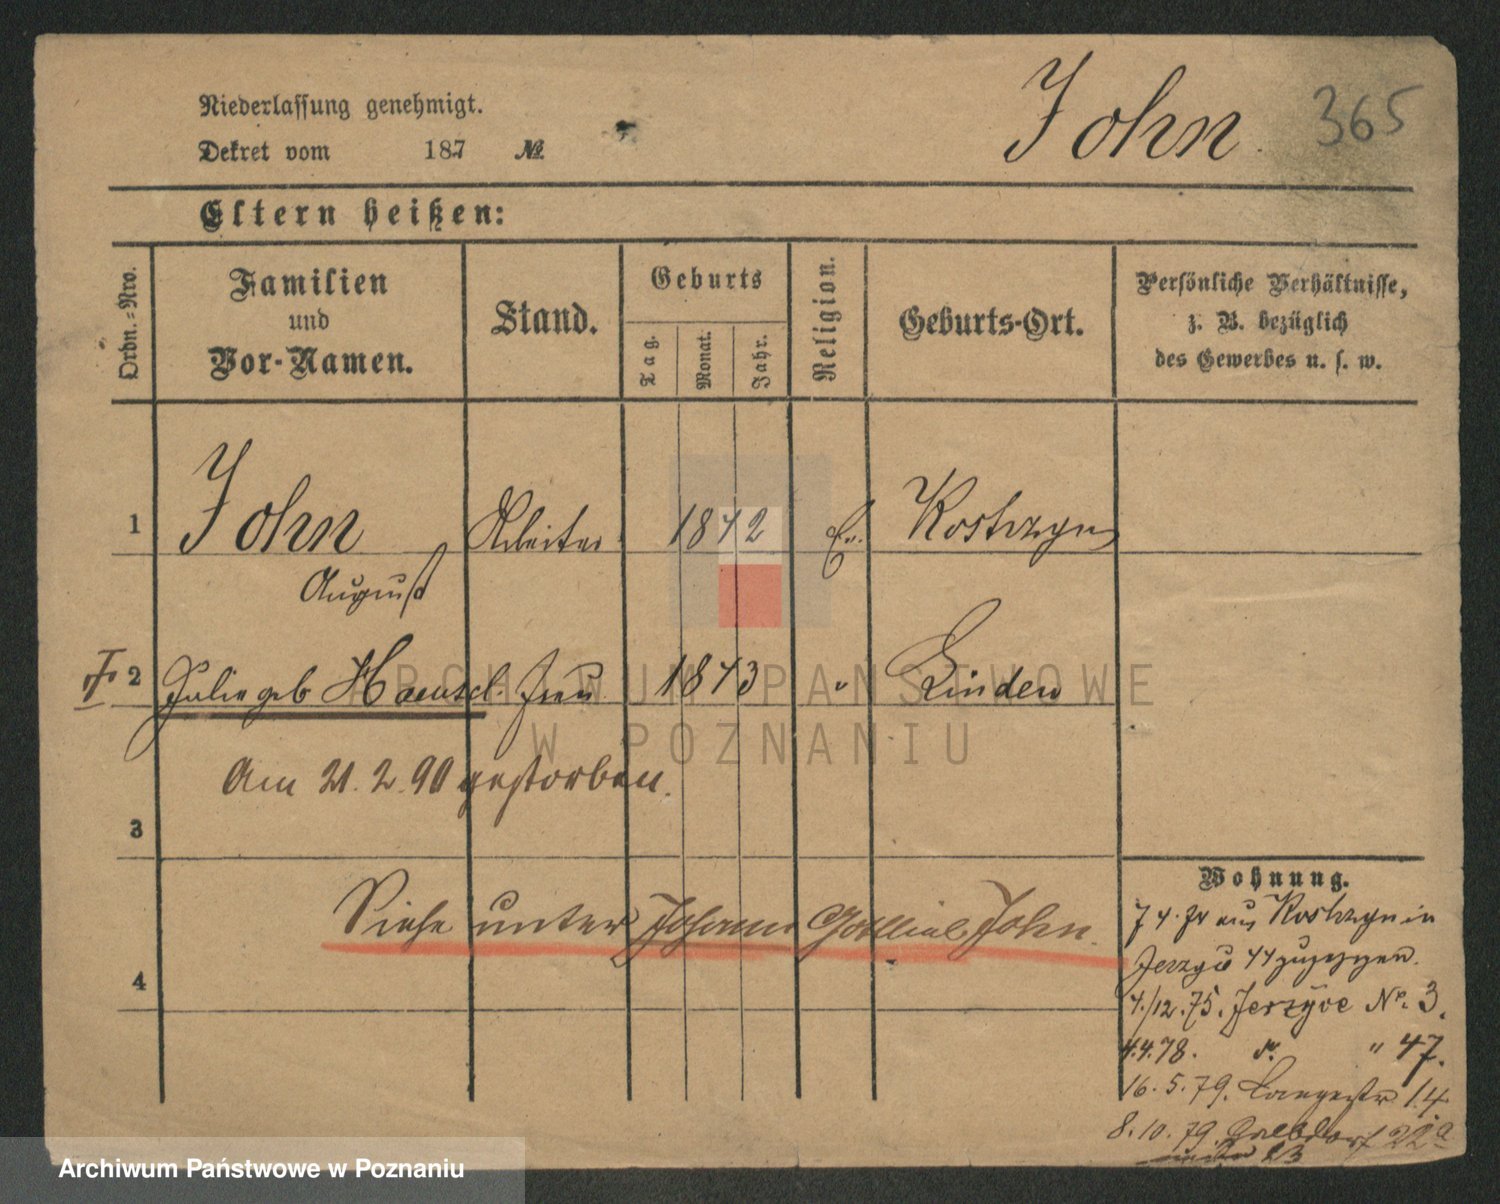 John
365
Niederlassung genehmigt.
Dekret vom 187 №
Eltern heißen:
Ordn.-Nro.
Familien
und
Vor-Namen.
Stand.
Geburts
Tag.
Monat.
Jahr.
Religion.
Geburts-Ort.
Persönliche Verhältnisse,
z. B. bezüglich
des Gewerbes u. s. w.
1 John Arbeiter 1842 Ev. Kostrzyn
August
2 Julie geb Haensel. Frau 1843 " Linden
Am 21.2.90 gestorben.
3
Siehe unter Johann Gottlieb John.
4
Wohnung.
aus Kostrzyn in
Jerzyce 44 zugezogen.
4./12.75. Jerzyce No. 3.
4.4.78. do. " 47.
16.5.79. Langestr 14.
8.10.79. 22a
23
ARCHIWUM PAŃSTWOWE
W POZNANIU
Archiwum Państwowe w Poznaniu